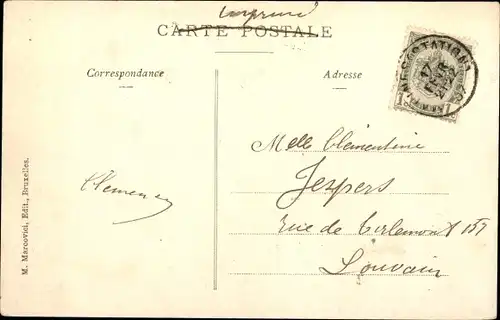 imprimé
CARTE POSTALE
Correspondance
Adresse
Melle Clémentine
Jespers
Rue de Tirlemont 157
Louvain
M. Marcovici, Edit., Bruxelles.